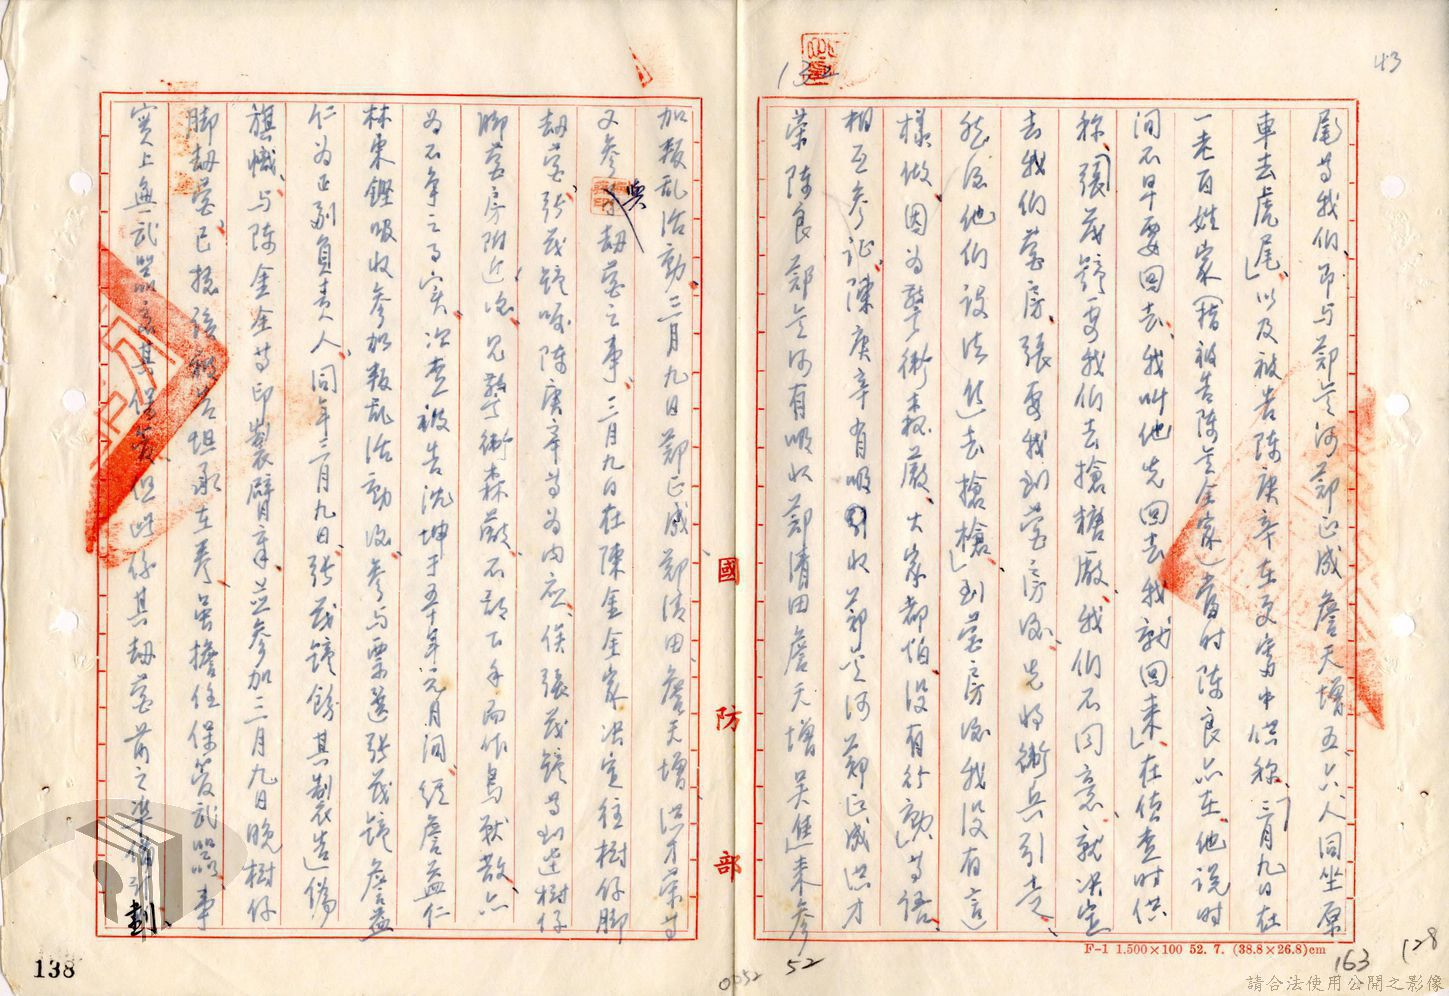 43
132
尾等我們即与鄭老河鄭正成詹天增五六人同坐原
車去虎尾」以及被告陳庚辛在更審中供称「三月九日在
一老百姓家(指被告陳金全家)當时陳良亦在他説时
間不早要回去我叫他先回去我就回來」在偵查时供
称「張茂鐘要我們去搶糖廠我們不同意就决定
去我們營房張要我到營房後先将衛兵引走
然後他們設法進去搶槍」「到營房後我没有這
樣做因為警衛森嚴大家都怕没有行動」等語
相互参証陳庚辛有吸收鄭老河鄭正成洪才
榮陳良鄭老河有吸收鄭清田詹天增吴進來参
加叛乱活動三月九日鄭正成鄭清田詹天增洪才榮等
又参与劫營之事三月九日在陳金全家决定往樹仔脚
吴
劫營張茂鐘囑陳庚辛等為内应俟張茂鐘等到達樹仔
脚營房附近後見警衛森嚴不敢下手而作鳥獸散亦
為不爭之事实次查被告沈坤于五十年元月間經詹益仁
林東鏗吸收参加叛乱活動後参与票選張茂鐘詹益
仁為正副負責人同年三月九日張茂鐘飭其製造偽
旗幟与陳金全等印製臂章並参加三月九日晚樹仔
脚劫營已據該被告坦承在卷虽擔任保管武器事
实上無武器交其保管但此係其劫營前之準備計
劃
國防部
F-1 1.500×100 52. 7. (38.8×26.8)cm
163
128
52
0052
138
請合法使用公開之影像